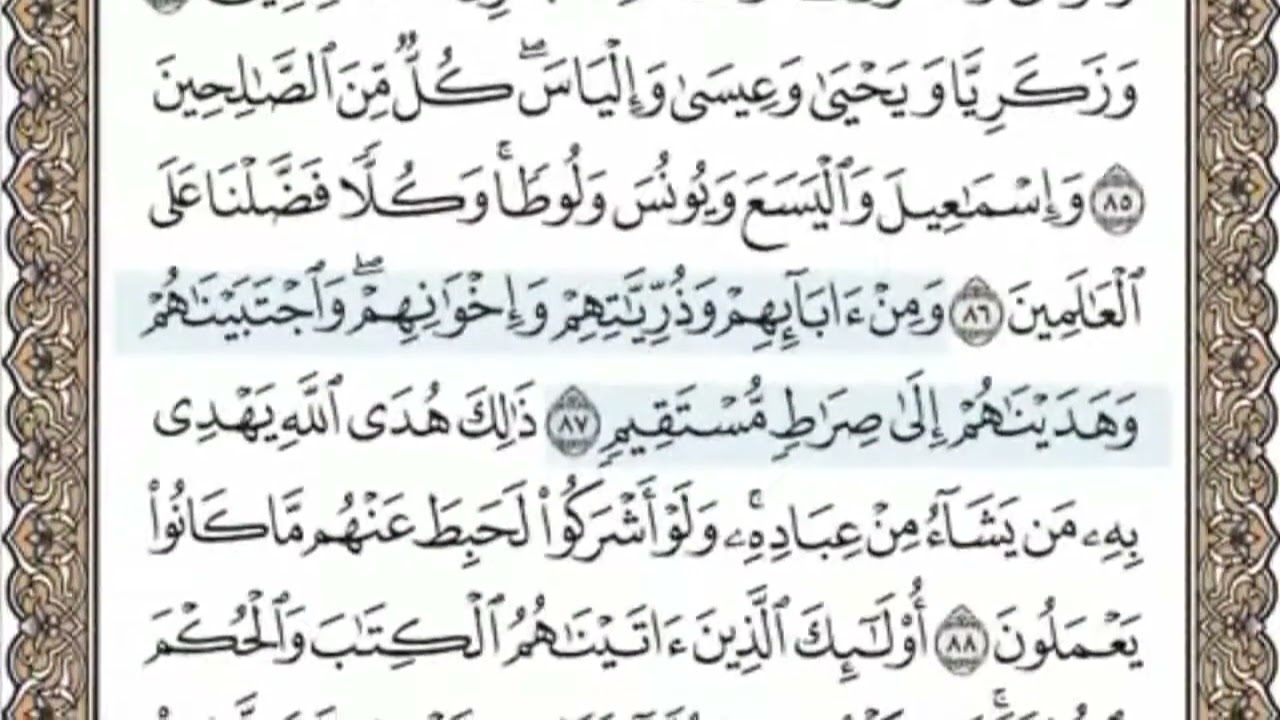 وَزَكَرِيَّا وَيَحْيَىٰ وَعِيسَىٰ وَإِلْيَاسَ ۖ كُلٌّ مِّنَ ٱلصَّـٰلِحِينَ
٨٥ وَإِسْمَـٰعِيلَ وَٱلْيَسَعَ وَيُونُسَ وَلُوطًا ۚ وَكُلًّا فَضَّلْنَا عَلَى
ٱلْعَـٰلَمِينَ ٨٦ وَمِنْ ءَابَآئِهِمْ وَذُرِّيَّـٰتِهِمْ وَإِخْوَٰنِهِمْ ۖ وَٱجْتَبَيْنَـٰهُمْ
وَهَدَيْنَـٰهُمْ إِلَىٰ صِرَٰطٍ مُّسْتَقِيمٍ ٨٧ ذَٰلِكَ هُدَى ٱللَّهِ يَهْدِى
بِهِۦ مَن يَشَآءُ مِنْ عِبَادِهِۦ ۚ وَلَوْ أَشْرَكُوا۟ لَحَبِطَ عَنْهُم مَّا كَانُوا۟
يَعْمَلُونَ ٨٨ أُو۟لَـٰٓئِكَ ٱلَّذِينَ ءَاتَيْنَـٰهُمُ ٱلْكِتَـٰبَ وَٱلْحُكْمَ